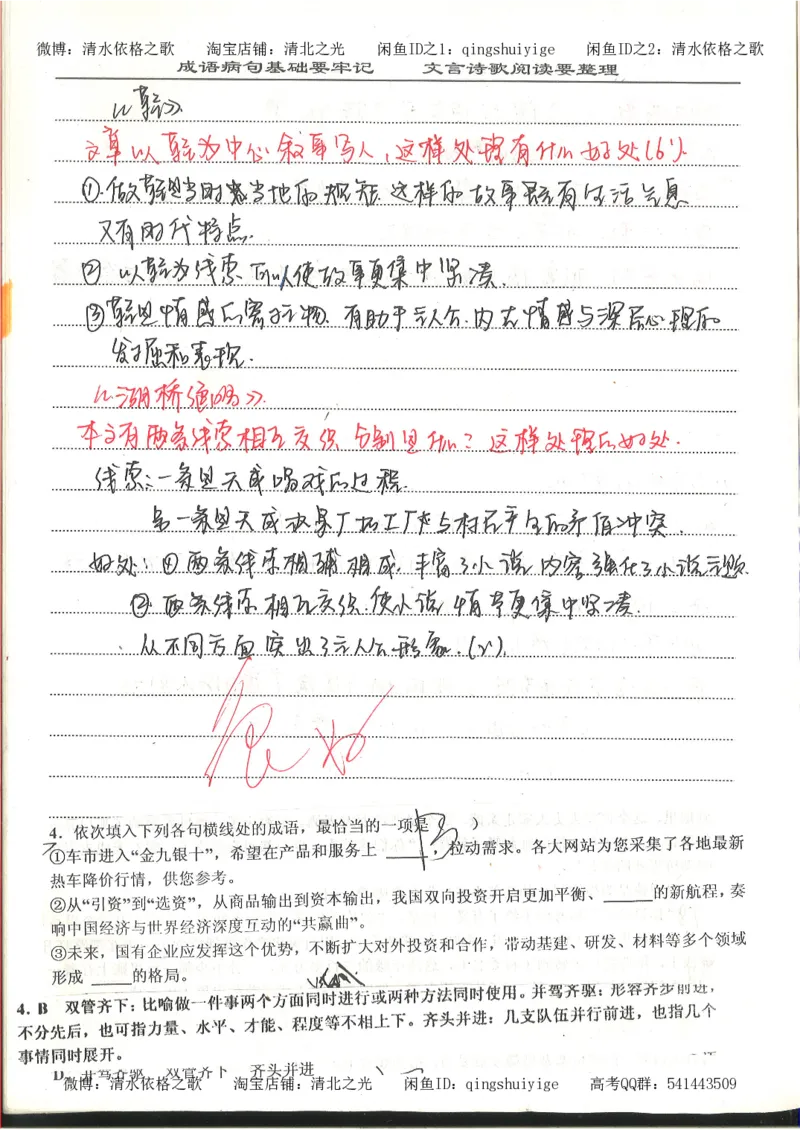 微博：清水依格之歌 淘宝店铺：清北之光 闲鱼ID之1：qingshuiyige 闲鱼ID之2：清水依格之歌
成语病句基础要牢记 文言诗歌阅读要整理
《鞋》
文章以鞋为中心叙事写人，这样处理有什么好处(6')
①做鞋是当时当地的规矩 这样的故事既有生活气息
又有时代特点.
② 以鞋为线索 可以使故事更集中紧凑.
③鞋是情感的寄予物. 有助于主人公.内在情感与深层心理的
发掘和表现.
《湖桥绝唱》
本文有两条线索相互交织 分别是什么？这样处理的好处.
线索：一条是天成唱戏的过程.
另一条是天成 工厂 与村民产生的矛盾冲突.
好处：①两条线索相辅相成，丰富了小说内容 强化了小说主题.
②. 两条线索相互交织，使小说情节更集中紧凑.
从不同方面突出了主人公形象.
良好
4．依次填入下列各句横线处的成语，最恰当的一项是
①车市进入“金九银十”，希望在产品和服务上____，拉动需求。各大网站为您采集了各地最新
热车降价行情，供您参考。
②从“引资”到“选资”，从商品输出到资本输出，我国双向投资开启更加平衡、____的新航程，奏
响中国经济与世界经济深度互动的“共赢曲”。
③未来，国有企业应发挥这个优势，不断扩大对外投资和合作，带动基建、研发、材料等多个领域
形成____的格局。
4. B 双管齐下：比喻做一件事两个方面同时进行或两种方法同时使用。并驾齐驱：形容齐步前进，
不分先后，也可指力量、水平、才能、程度等不相上下。齐头并进：几支队伍并行前进，也指几个
事情同时展开。
D. 并驾齐驱 双管齐下 齐头并进
微博：清水依格之歌 淘宝店铺：清北之光 闲鱼ID：qingshuiyige 高考QQ群：541443509